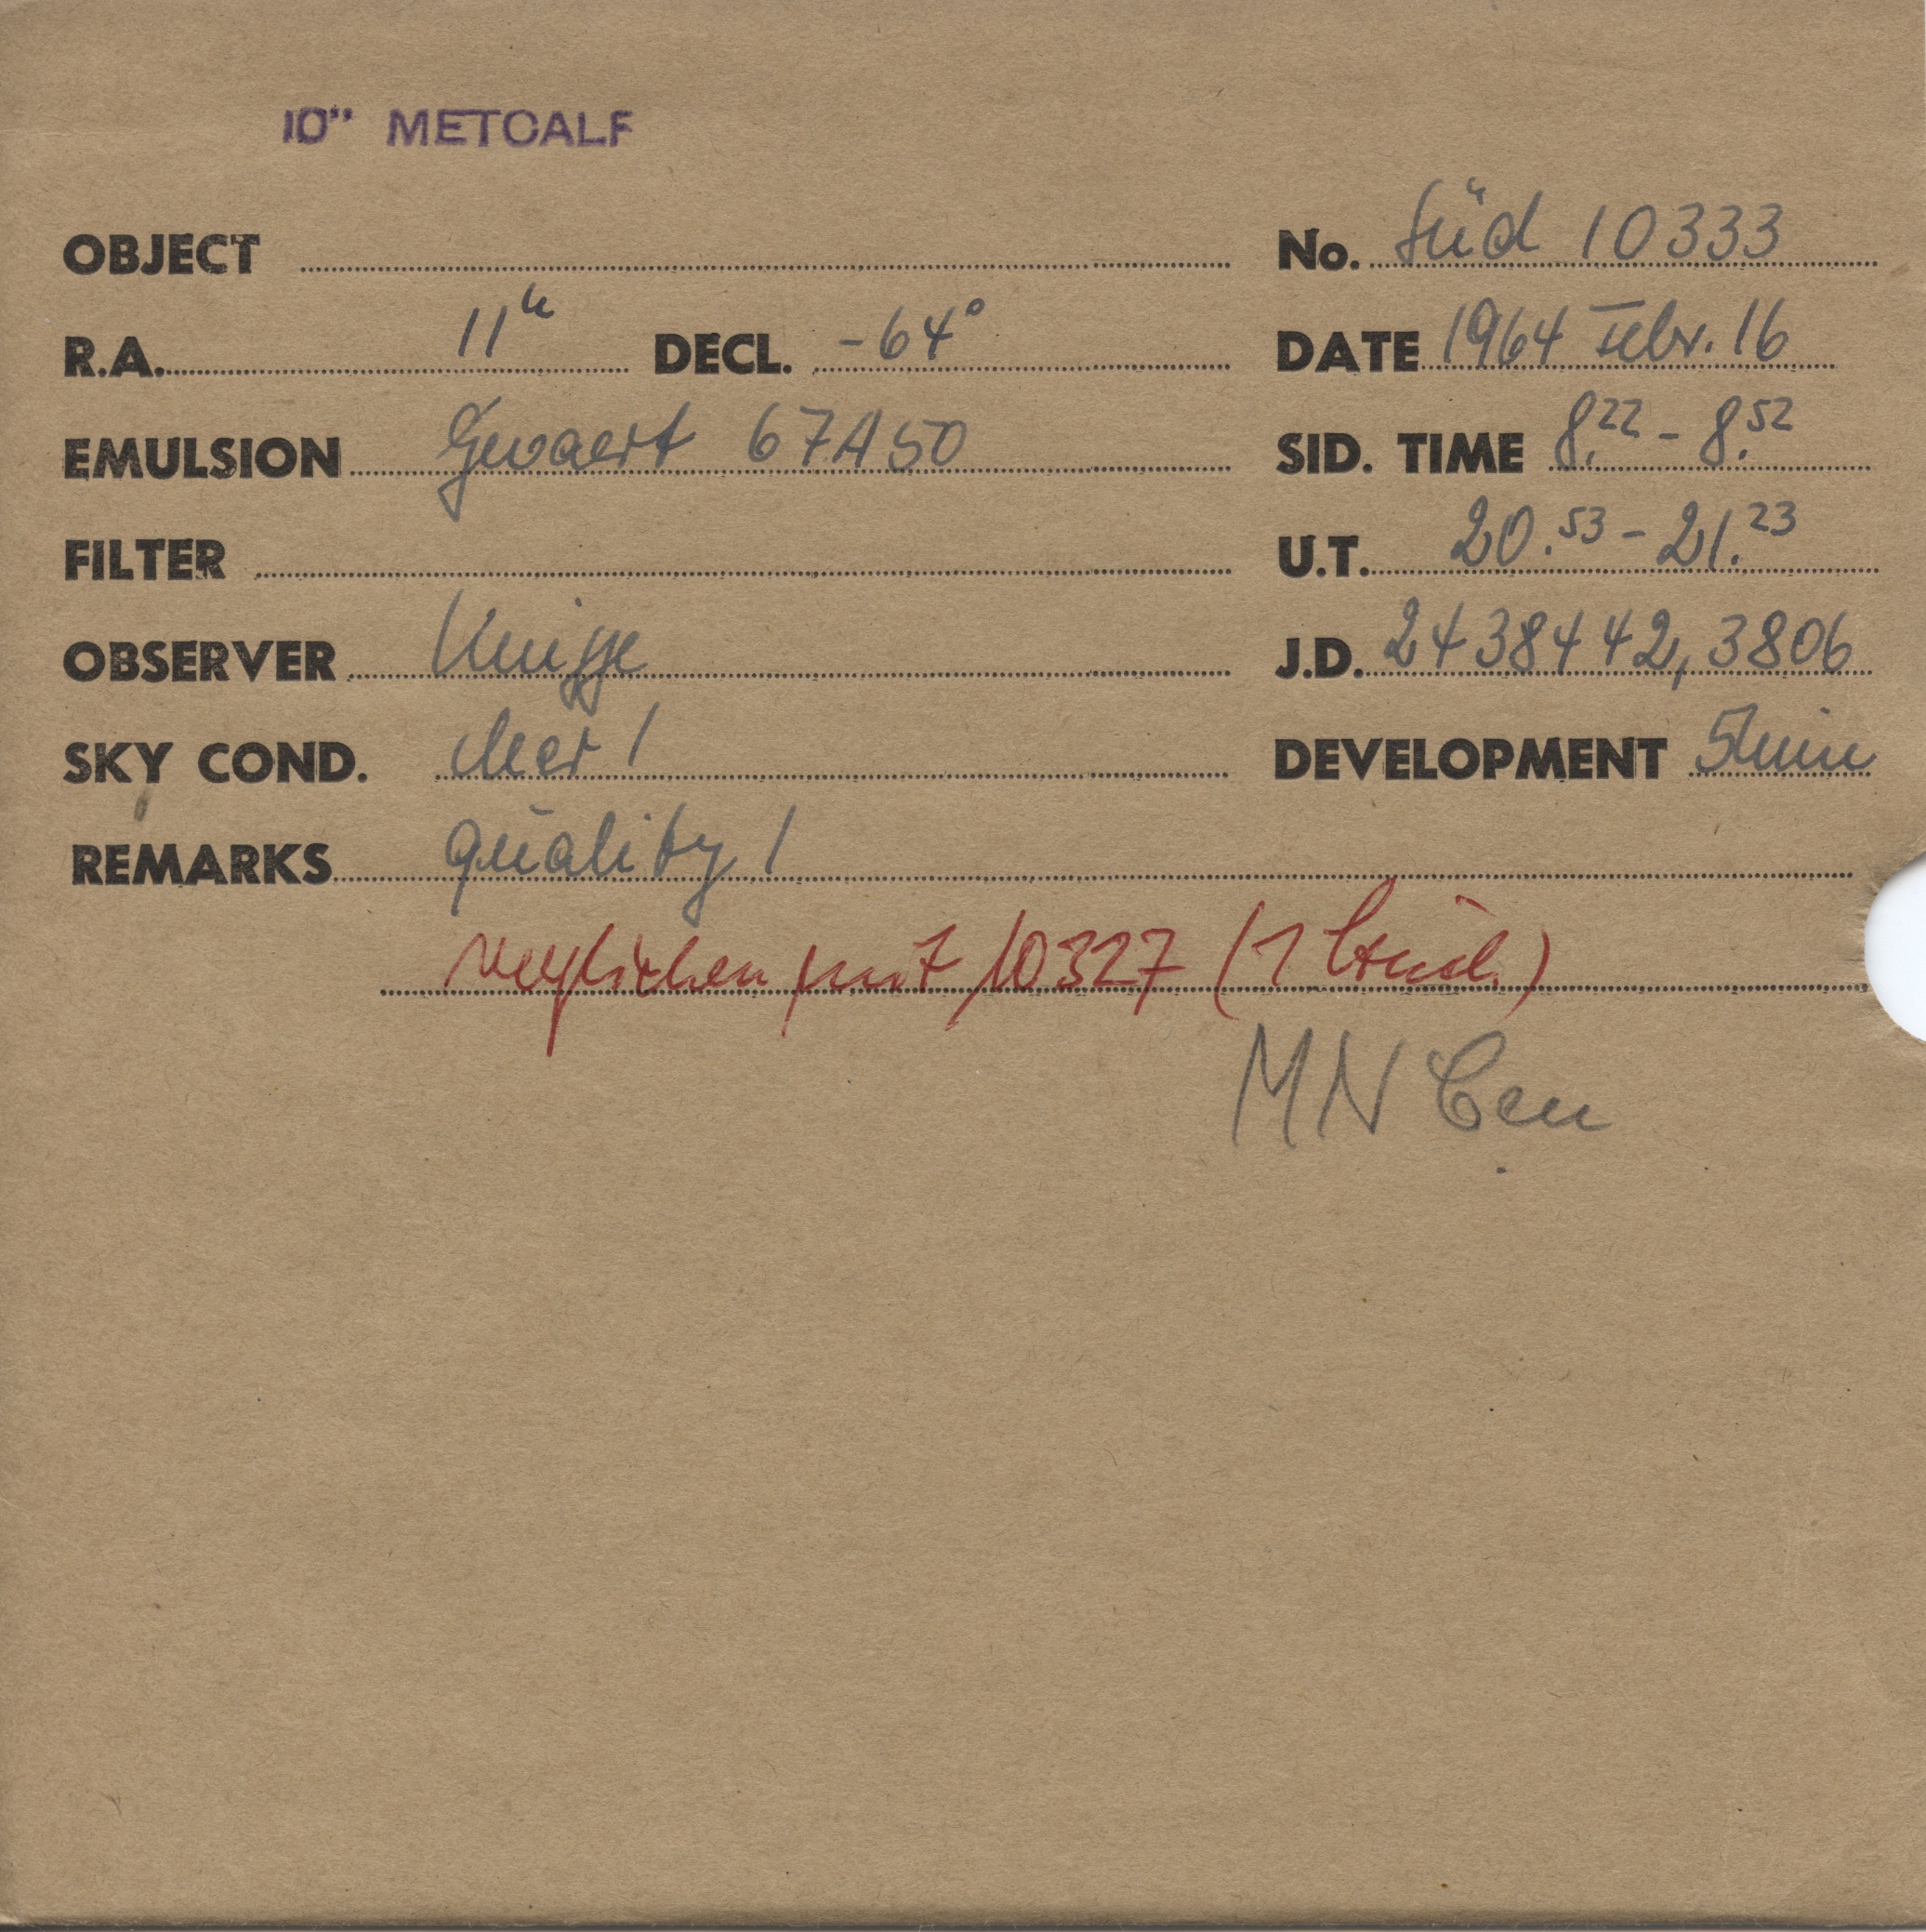 10" METCALF
OBJECT No. Süd 10333
R.A. 11h DECL. -64° DATE 1964 Febr. 16
EMULSION Gevaert 67A50 SID. TIME 8.22 - 8.52
FILTER U.T. 20.53 - 21.23
OBSERVER Knigge J.D. 2438442,3806
SKY COND. clear 1 DEVELOPMENT 5min
REMARKS quality 1
verglichen mit 10327 (1 Stud.)
MN Cen